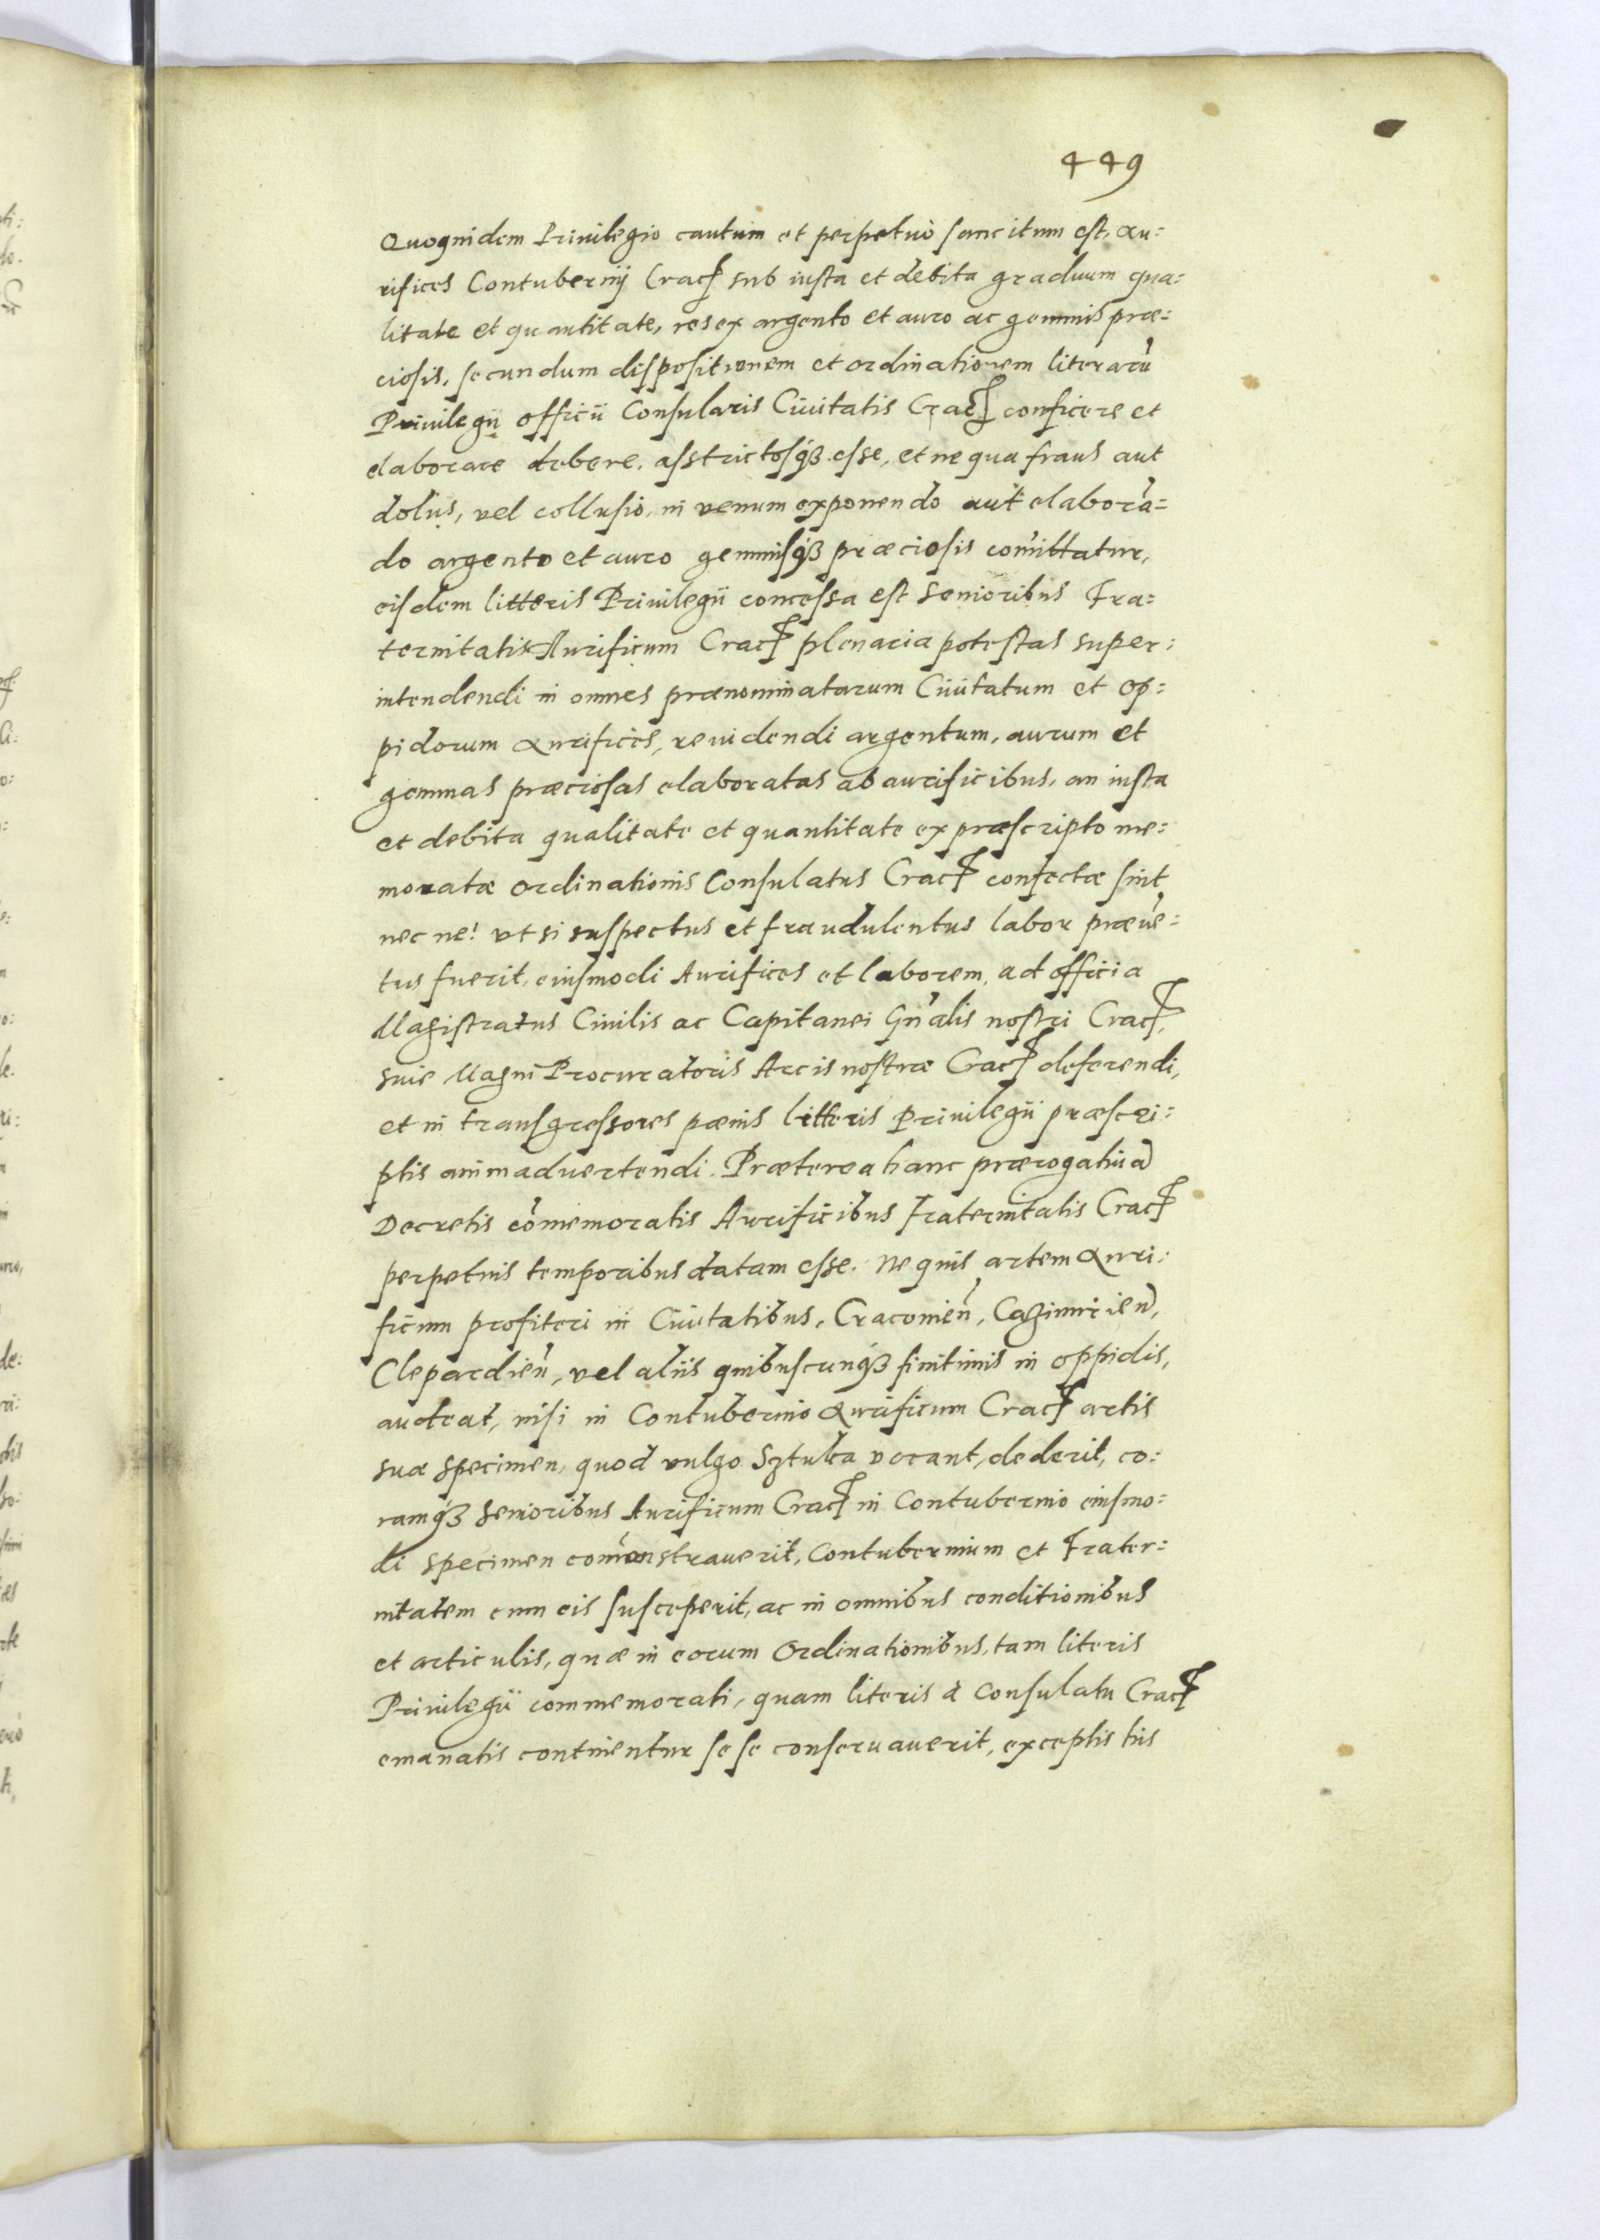 449
Quoquidem Priuilegio cautum et perpetuò sancitum est, Au:
rifices Contubernij Crac sub iusta et debita graduum qua:
litate et quantitate, res ex argento et auro ac gemmis præ:
ciosis, secundum dispositionem et ordinationem literarũ
Priuilegii officii Consularis Ciuitatis Crac conficere et
elaborare debere, asstrictosq3 esse, et ne qua fraus aut
dolus, vel collusio, in venum exponendo aut elaborã=
do argento et auro gemmisq3 præciosis comittatur,
eisdem litteris Priuilegii concessa est Senioribus Fra:
ternitatis Aurificum Crac plenaria potestas super:
intendendi in omnes prænominatarum Ciuitatum et op:
pidorum Aurifices, reuidendi argentum, aurum et
gemmas præciosas elaboratas ab aurificibus, an iusta
et debita qualitate et quantitate ex præscripto me:
moratæ ordinationis Consulatus Crac confectæ sint
nec ne! vt si suspectus et fraudulentus labor præuẽ:
tus fuerit, eiusmodi Aurifices et laborem, ad officia
Magistratus Ciuilis ac Capitanei Gñalis nostri Crac,
suie Magni Procuratoris Arcis nostræ Crac deferendi,
et in transgressores pœnis litteris Priuilegii præscri:
ptis animaduertendi. Præterea hanc prærogatiuã
Decretis cõmemoratis Aurificibus Fraternitatis Crac
perpetuis temporibus datam esse. Ne quis artem Auri:
ficum profiteri in Ciuitatibus, Cracouieñ, Cazimirieñ,
Clepardieñ, vel aliis quibuscunq3 finitimis in oppidis,
audeat, nisi in Contubernio Aurificum Crac artis
suæ specimen, quod vulgo Sztuka vocant, dederit, co:
ramq3 Senioribus Aurificum Crac in Contubernio eiusmo:
di specimen comonstrauerit, Contubernium et Frater:
nitatem cum eis susceperit, ac in omnibus conditionibus
et articulis, quæ in eorum Ordinationibus, tam literis
Priuilegii commemorati, quam literis à Consulatu Crac
emanatis continentur sese conseruauerit, exceptis his